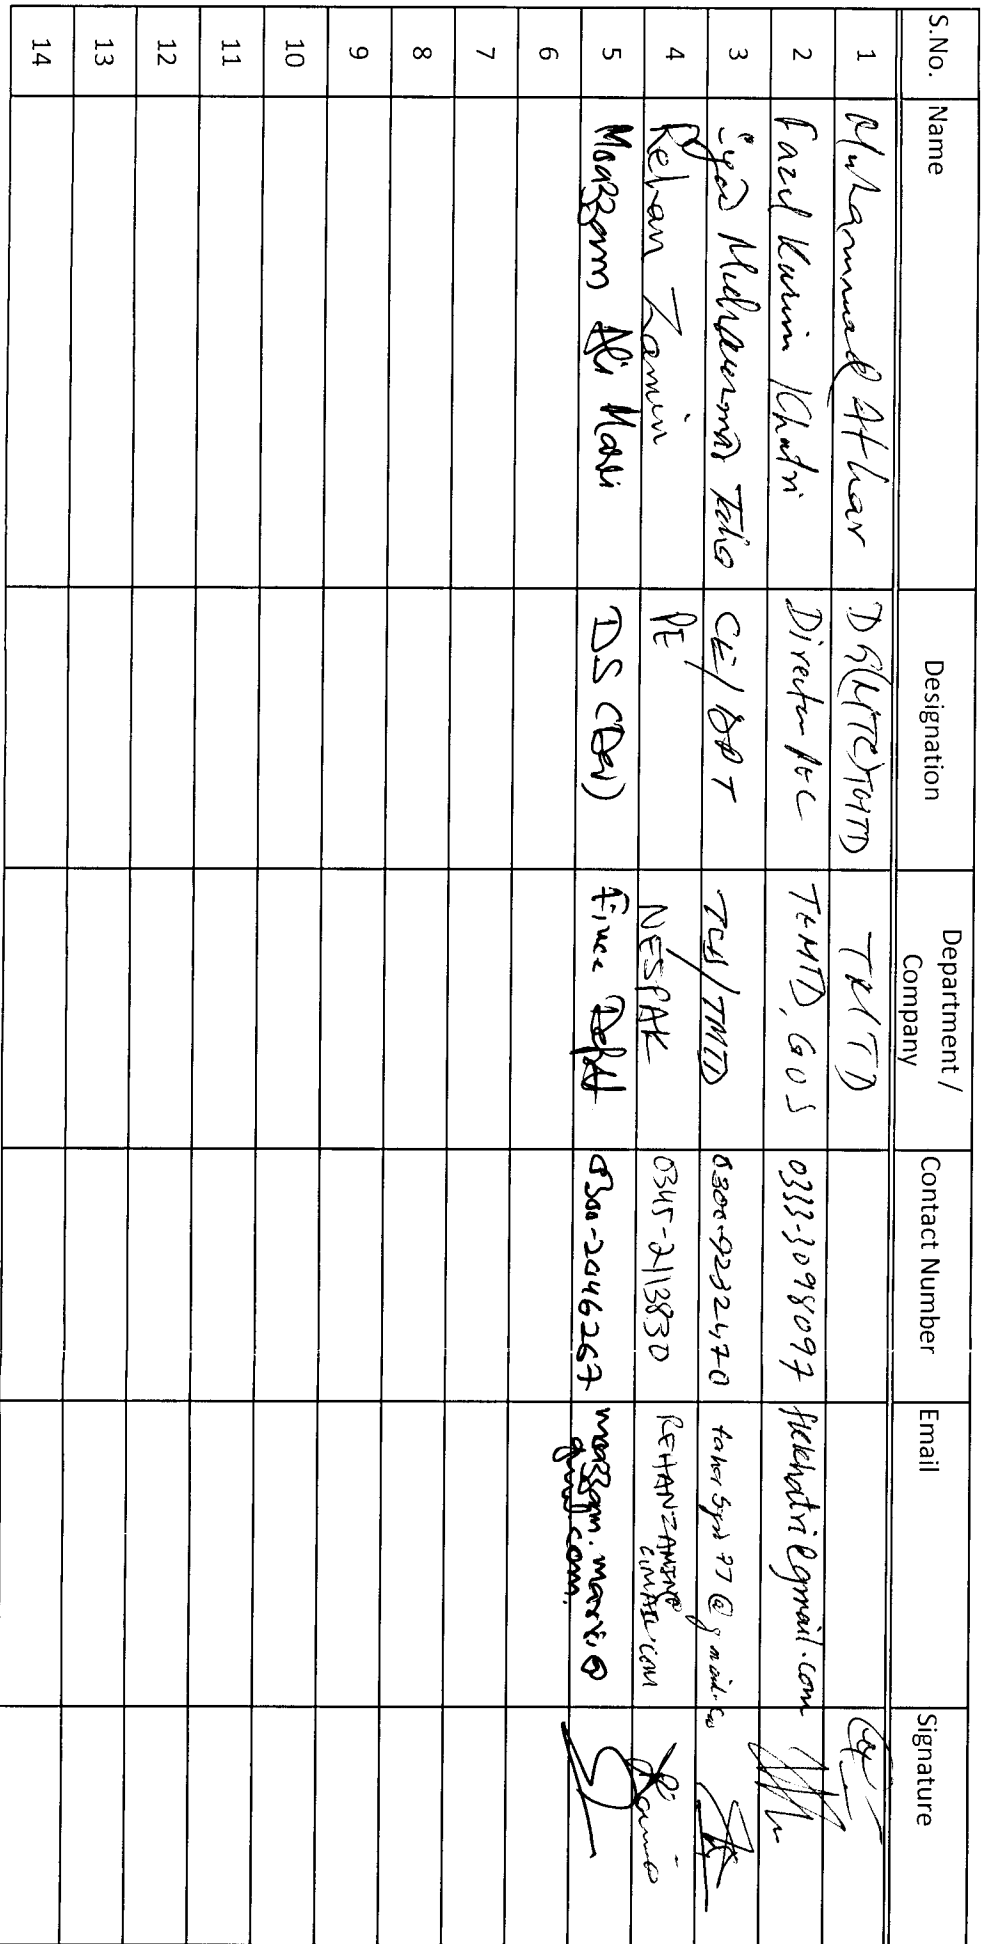 S.No. Name Designation Department / Company Contact Number Email Signature
1 Muhammad Athar
2 Fazal Karim Khatri Director TEMTD, GOS 0333-3098097 fkkhatri@gmail.com
3 Syed Muhammad Taha TMTD 0300-9232470
4 Rehan Zamin PE NESPAK 0345-2113830 REHANZAMIN@GMAIL.COM
5 Moazzam Ali Mari DS (Dev) Fince Deptt 0300-2046267 moazzam.mari@gmail.com.
6
7
8
9
10
11
12
13
14